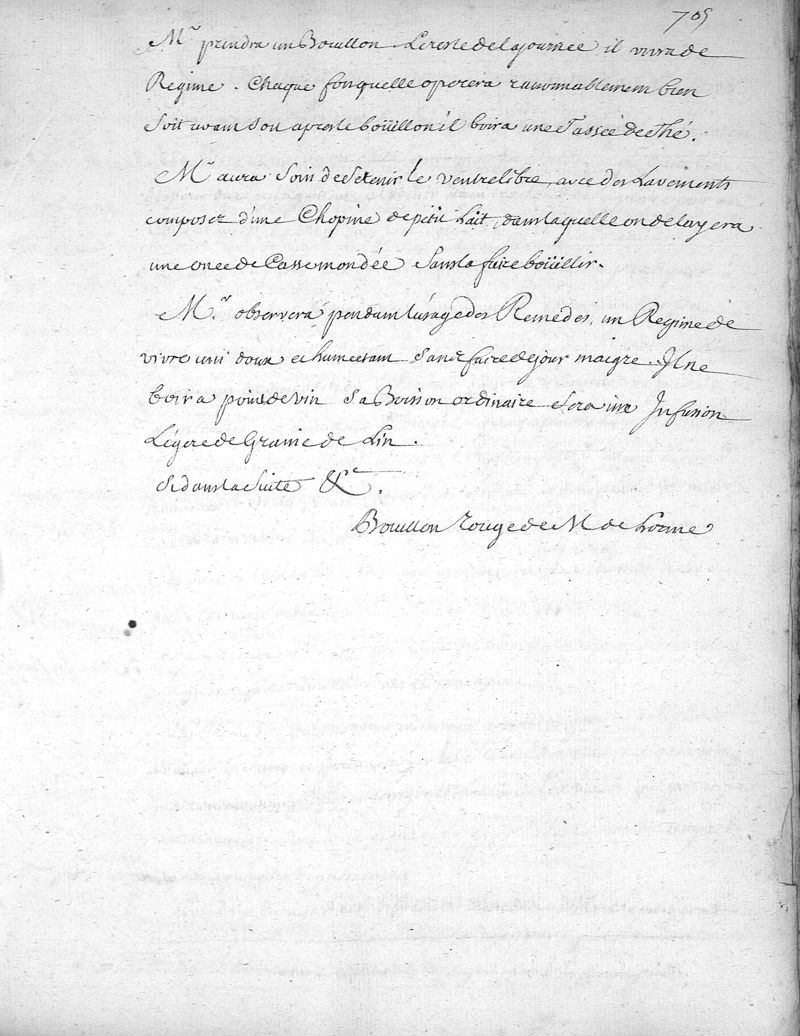 705
Mr. prendra un Bouillon. Le reste de la journée il vivra de
Regime. Chaque fois quelle operera raisonnablement bien
soit avant sou apres le boüillon il boira une Tassée de Thé.
Mr. aura soin de se tenir le ventre libre, avec des Lavements
composez d'une Chopine de petit Lait, dans laquelle on delayera
une once de Casse mondée sans la faire boüillir.
Mr. observera pendant l'usage des Remedes, un Regime de
vivre uni doux et humectant sans faire de jour maigre. Il ne
boira point de vin sa Boisson ordinaire sera une Infusion
Légere de Graine de Lin.
Si dans la suite &c.
Bouillon rouge de M de Lorme